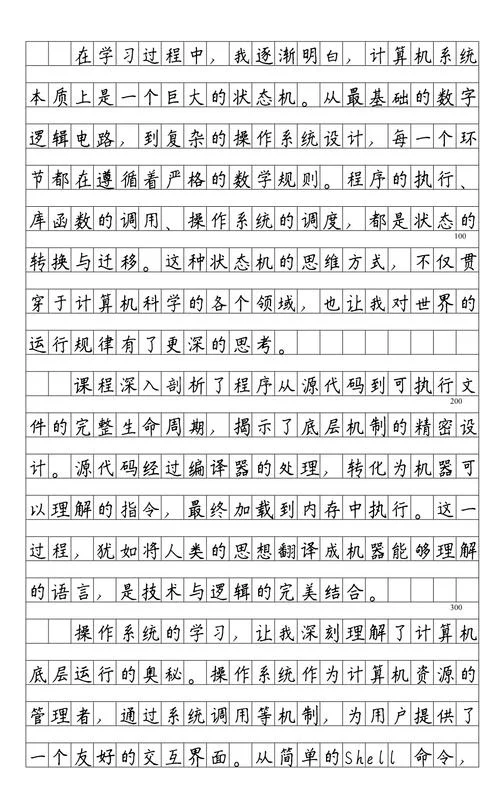 在学习过程中，我逐渐明白，计算机系统
本质上是一个巨大的状态机。从最基础的数字
逻辑电路，到复杂的操作系统设计，每一个环
节都在遵循着严格的数学规则。程序的执行、
库函数的调用、操作系统的调度，都是状态的
100
转换与迁移。这种状态机的思维方式，不仅贯
穿于计算机科学的各个领域，也让我对世界的
运行规律有了更深的思考。
课程深入剖析了程序从源代码到可执行文
200
件的完整生命周期，揭示了底层机制的精密设
计。源代码经过编译器的处理，转化为机器可
以理解的指令，最终加载到内存中执行。这一
过程，犹如将人类的思想翻译成机器能够理解
的语言，是技术与逻辑的完美结合。
300
操作系统的学习，让我深刻理解了计算机
底层运行的奥秘。操作系统作为计算机资源的
管理者，通过系统调用等机制，为用户提供了
一个友好的交互界面。从简单的Shell 命令，